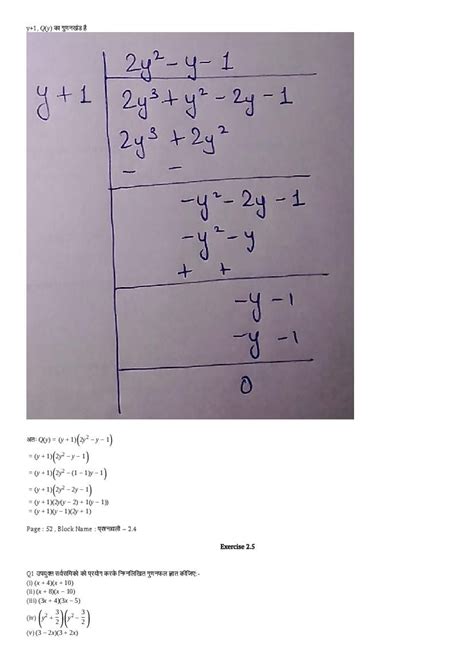 y+1, Q(y) का गुणनखंड है
2y² - y - 1
y + 1 2y³ + y² - 2y - 1
2y³ + 2y²
- -
-y² - 2y - 1
-y² - y
+ +
-y - 1
-y - 1
0
अतः Q(y) = (y + 1)(2y² - y - 1)
= (y + 1)(2y² - y - 1)
= (y + 1)(2y² - (1 - 1)y - 1)
= (y + 1)(2y² - 2y - 1)
= (y + 1)(2y(y - 2) + 1(y - 1))
= (y + 1)(y - 1)(2y + 1)
Page : 52 , Block Name : प्रश्नावली – 2.4
Exercise 2.5
Q1 उपयुक्त सर्वसमिकाे को प्रयोग करके निम्नलिखित गुणनफल ज्ञात कीजिए:-
(i) (x + 4)(x + 10)
(ii) (x + 8)(x - 10)
(iii) (3x + 4)(3x - 5)
(iv) (y² + 3/2)(y² - 3/2)
(v) (3 - 2x)(3 + 2x)